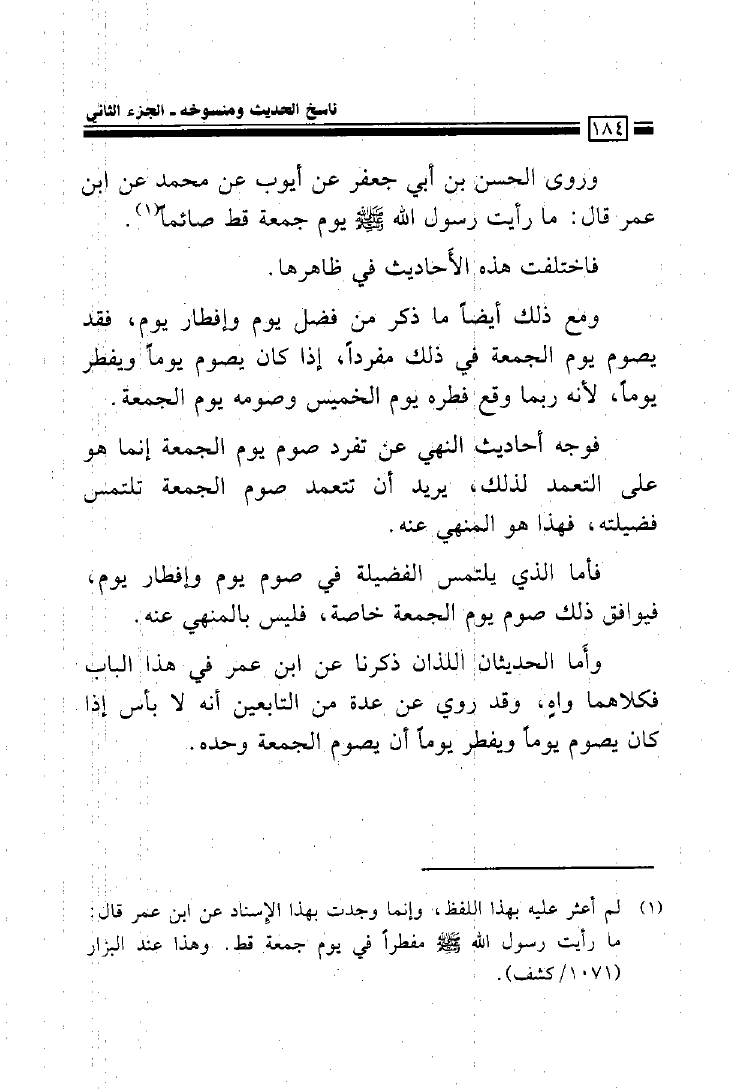 ناسخ الحديث ومنسوخه ـ الجزء الثاني
١٨٤
وروى الحسن بن أبي جعفر عن أيوب عن محمد عن ابن
عمر قال: ما رأيت رسول الله ﷺ يوم جمعة قط صائماً(١).
فاختلفت هذه الأحاديث في ظاهرها.
ومع ذلك أيضاً ما ذكر من فضل يوم وإفطار يوم، فقد
يصوم يوم الجمعة في ذلك مفرداً، إذا كان يصوم يوماً ويفطر
يوماً، لأنه ربما وقع فطره يوم الخميس وصومه يوم الجمعة.
فوجه أحاديث النهي عن تفرد صوم يوم الجمعة إنما هو
على التعمد لذلك، يريد أن تتعمد صوم الجمعة تلتمس
فضيلته، فهذا هو المنهي عنه.
فأما الذي يلتمس الفضيلة في صوم يوم وإفطار يوم،
فيوافق ذلك صوم يوم الجمعة خاصة، فليس بالمنهي عنه.
وأما الحديثان اللذان ذكرنا عن ابن عمر في هذا الباب
فكلاهما واهٍ، وقد روي عن عدة من التابعين أنه لا بأس إذا
كان يصوم يوماً ويفطر يوماً أن يصوم الجمعة وحده.
(١) لم أعثر عليه بهذا اللفظ، وإنما وجدت بهذا الإسناد عن ابن عمر قال:
ما رأيت رسول الله ﷺ مفطراً في يوم جمعة قط. وهذا عند البزار
(١٠٧١/كشف).